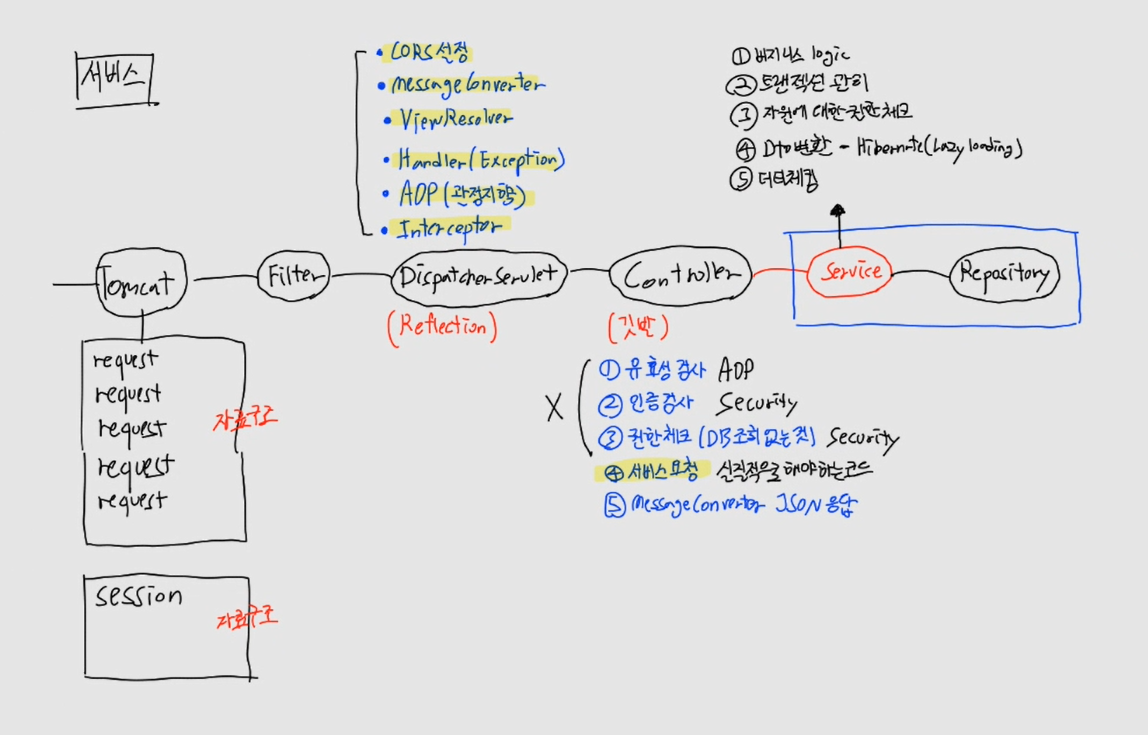 서비스
• CORS설정
• MessageConverter
• ViewResolver
• Handler(Exception)
• AOP(관점지향)
• Interceptor
① 비지니스 logic
② 트랜잭션 관리
③ 자원에 대한 권한체크
④ Dto변환 - Hibernate(Lazy loading)
⑤ 더티체킹
Tomcat
Filter
DispatcherServlet
Controller
Service
Repository
(Reflection)
(깃발)
request
request
request
request
request
자료구조
X
① 유효성 검사 AOP
② 인증검사 Security
③ 권한체크 (DB조회 없는것) Security
④ 서비스요청 실질적으로 해야하는코드
⑤ MessageConverter JSON 응답
session
자료구조